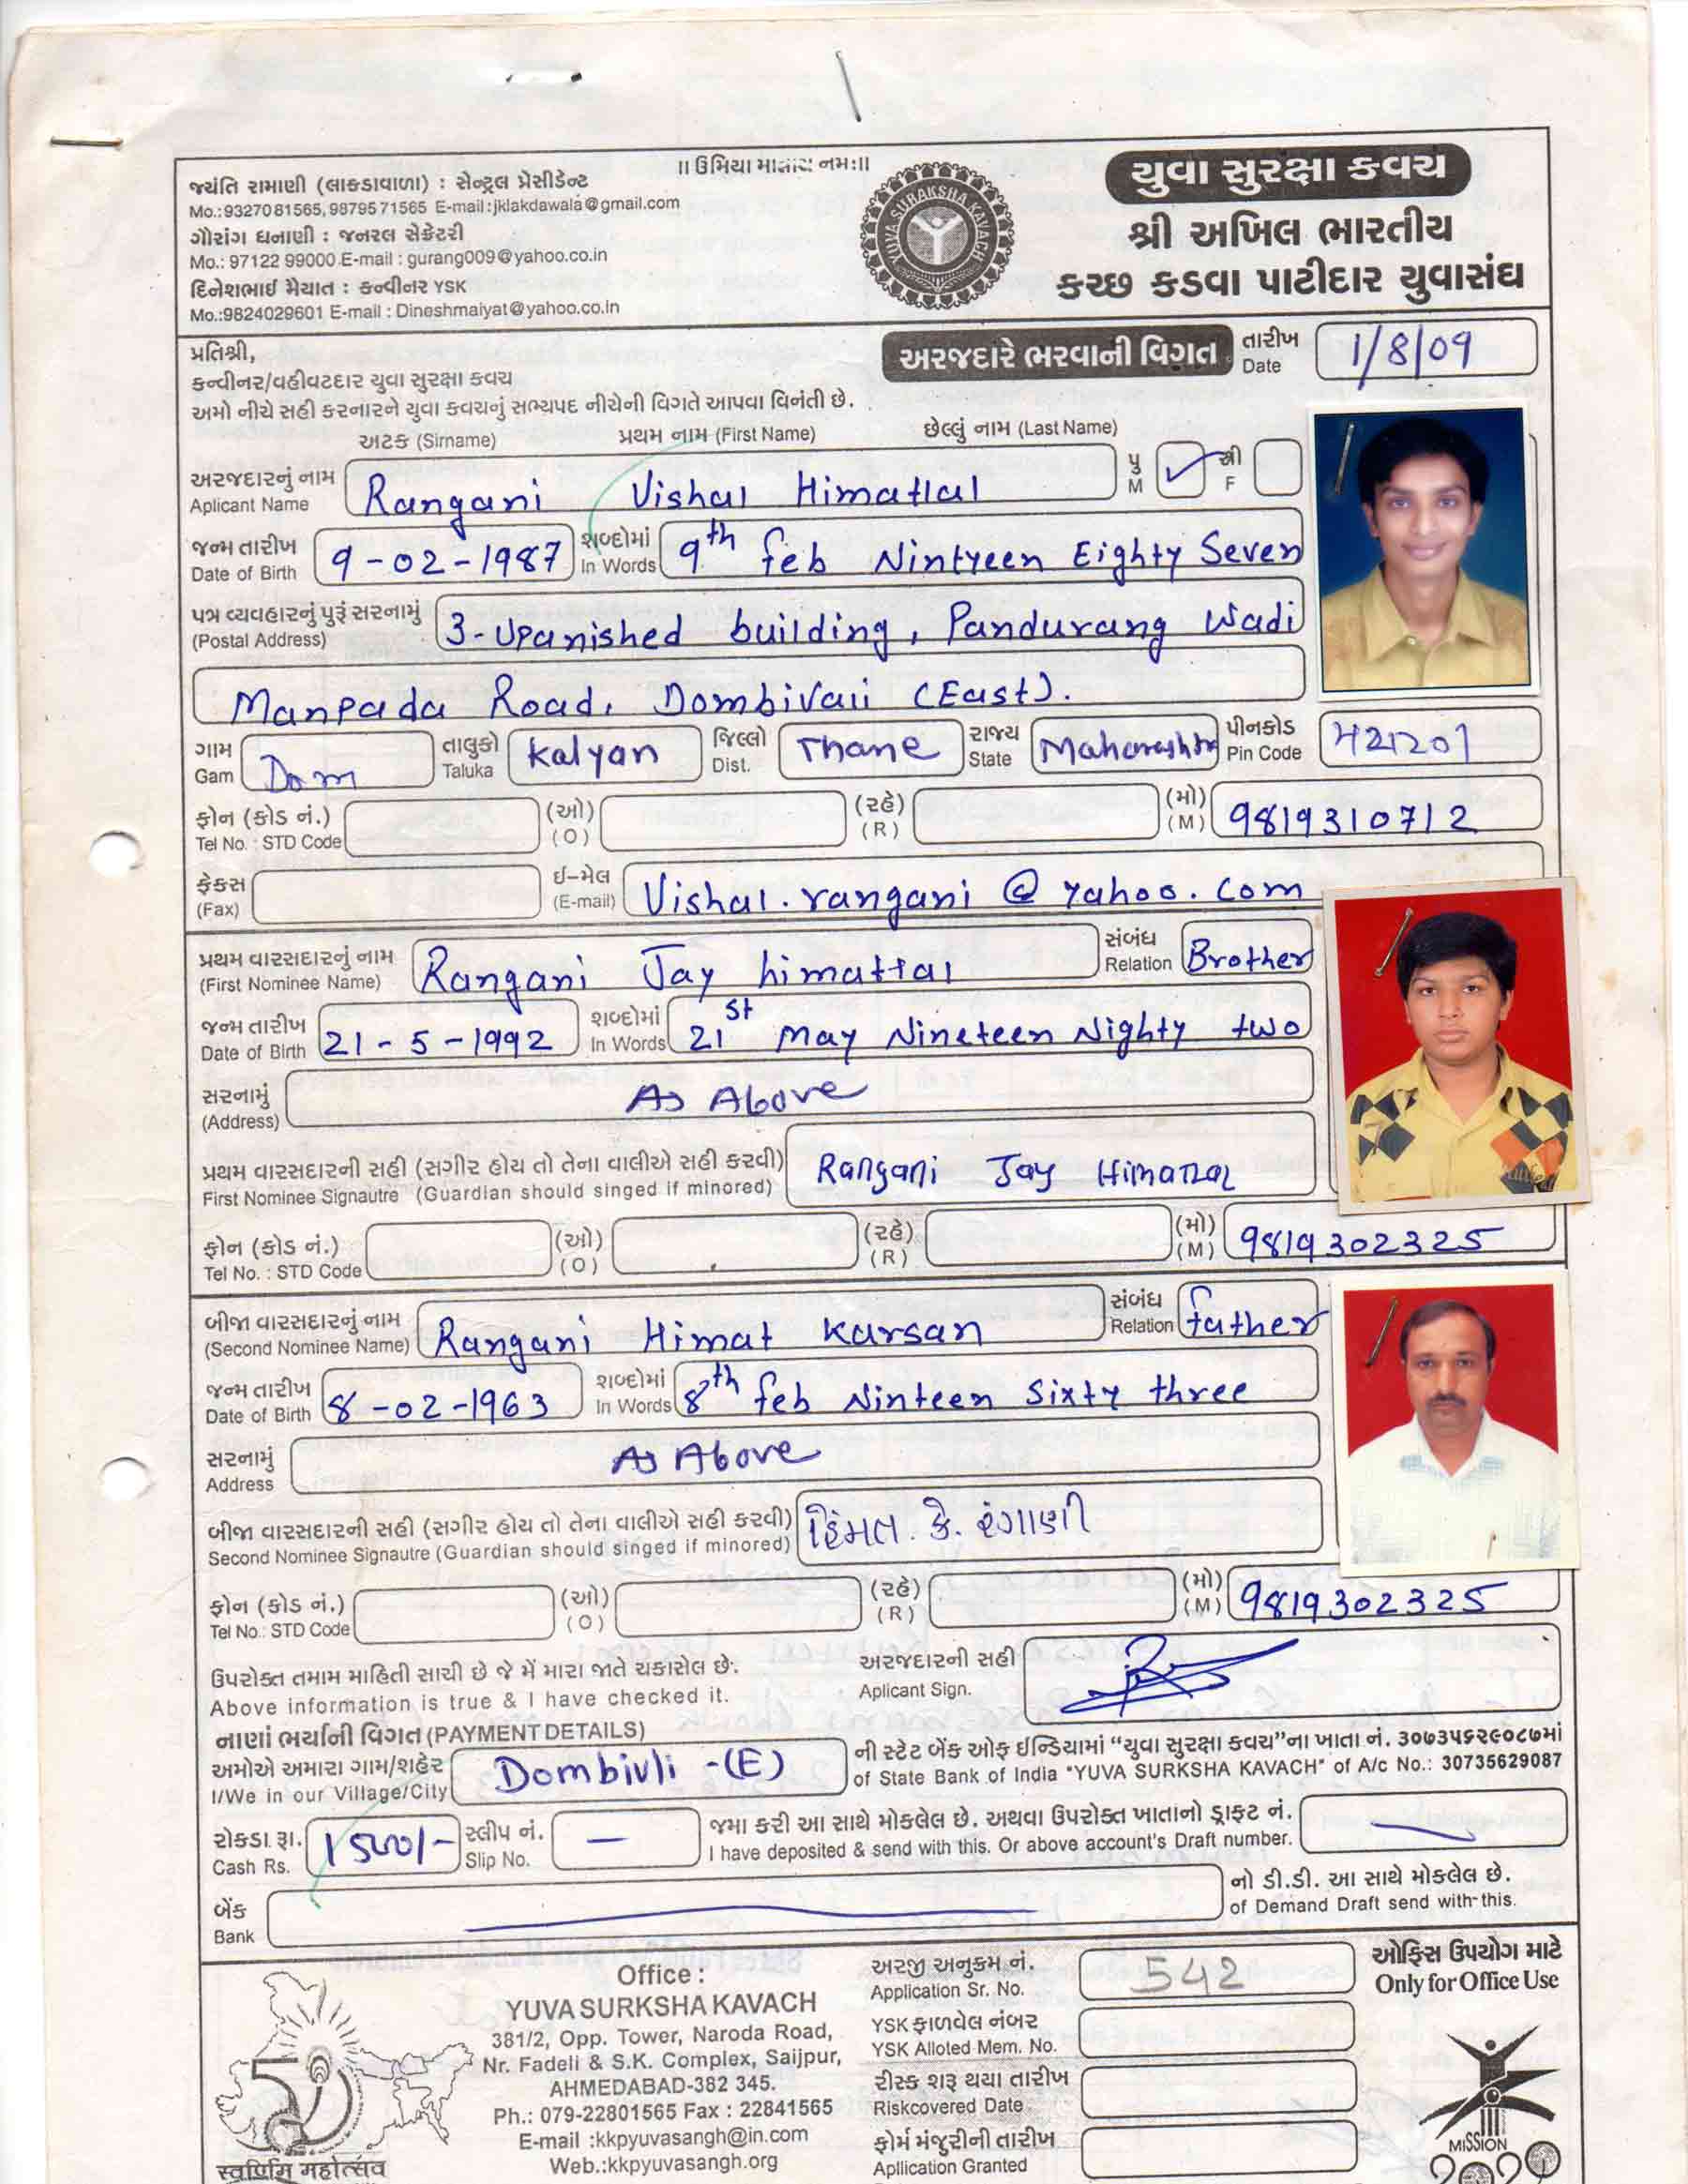 ॥ ઉમિયા માતાય નમઃ॥
જયંતિ રામાણી (લાકડાવાળા) : સેન્ટ્રલ પ્રેસીડેન્ટ
Mo.:9327081565,9879571565 E-mail:jklakdawala@gmail.com
ગૌરાંગ ધનાણી : જનરલ સેક્રેટરી
Mo.: 97122 99000 E-mail : gurang009@yahoo.co.in
દિનેશભાઈ મૈયાત : કન્વીનર YSK
Mo.:9824029601 E-mail : Dineshmaiyat@yahoo.co.in
YUVA SURAKSHA KAVACH
યુવા સુરક્ષા કવચ
શ્રી અખિલ ભારતીય
કચ્છ કડવા પાટીદાર યુવાસંઘ
પ્રતિશ્રી,
કન્વીનર/વહીવટદાર યુવા સુરક્ષા કવચ
અરજદારે ભરવાની વિગત તારીખ Date 1/8/09
અમો નીચે સહી કરનારને યુવા કવચનું સભ્યપદ નીચેની વિગતે આપવા વિનંતી છે.
અટક (Sirname) પ્રથમ નામ (First Name) છેલ્લું નામ (Last Name)
અરજદારનું નામ Aplicant Name Rangani Vishal Himatlal પુ M ✓ સ્ત્રી F
જન્મ તારીખ Date of Birth 9-02-1987 શબ્દોમાં In Words 9th feb Nintyeen Eighty Seven
પત્ર વ્યવહારનું પુરૂં સરનામું (Postal Address) 3-Upanished building, Pandurang Wadi
Manpada Road, Dombivali (East).
ગામ Gam Dom તાલુકો Taluka Kalyan જિલ્લો Dist. Thane રાજ્ય State Maharashtra પીનકોડ Pin Code 421201
ફોન (કોડ નં.) Tel No. : STD Code (ઓ) (O) (રહે) (R) (મો) (M) 9819310712
ફેક્સ (Fax) ઈ-મેલ (E-mail) Vishal.rangani@yahoo.com
પ્રથમ વારસદારનું નામ (First Nominee Name) Rangani Jay himatlal સંબંધ Relation Brother
જન્મ તારીખ Date of Birth 21-5-1992 શબ્દોમાં In Words 21st May Nineteen Nighty two
સરનામું (Address) As Above
પ્રથમ વારસદારની સહી (સગીર હોય તો તેના વાલીએ સહી કરવી)
First Nominee Signautre (Guardian should singed if minored) Rangani Jay Himatlal
ફોન (કોડ નં.) Tel No. : STD Code (ઓ) (O) (રહે) (R) (મો) (M) 9819302325
બીજા વારસદારનું નામ (Second Nominee Name) Rangani Himat Karsan સંબંધ Relation father
જન્મ તારીખ Date of Birth 8-02-1963 શબ્દોમાં In Words 8th feb Ninteen Sixty three
સરનામું Address As Above
બીજા વારસદારની સહી (સગીર હોય તો તેના વાલીએ સહી કરવી)
Second Nominee Signautre (Guardian should singed if minored) હિંમત. કે. રંગાણી
ફોન (કોડ નં.) Tel No.: STD Code (ઓ) (O) (રહે) (R) (મો) (M) 9819302325
ઉપરોક્ત તમામ માહિતી સાચી છે જે મેં મારા જાતે ચકાસેલ છે.
Above information is true & I have checked it.
અરજદારની સહી Aplicant Sign.
નાણાં ભર્યાની વિગત (PAYMENT DETAILS)
અમોએ અમારા ગામ/શહેર I/We in our Village/City Dombivli -(E)
ની સ્ટેટ બેંક ઓફ ઈન્ડિયામાં “યુવા સુરક્ષા કવચ”ના ખાતા નં. ૩૦૭૩૫૬૨૯૦૮૭માં
of State Bank of India "YUVA SURKSHA KAVACH" of A/c No.: 30735629087
રોકડા રૂા. Cash Rs. 1500/- સ્લીપ નં. Slip No. —
જમા કરી આ સાથે મોકલેલ છે. અથવા ઉપરોક્ત ખાતાનો ડ્રાફ્ટ નં.
I have deposited & send with this. Or above account's Draft number. —
બેંક Bank — નો ડી.ડી. આ સાથે મોકલેલ છે.
of Demand Draft send with this.
Office :
YUVA SURKSHA KAVACH
381/2, Opp. Tower, Naroda Road,
Nr. Fadeli & S.K. Complex, Saijpur,
AHMEDABAD-382 345.
Ph.: 079-22801565 Fax : 22841565
E-mail :kkpyuvasangh@in.com
Web.:kkpyuvasangh.org
50
स्वर्णिम महोत्सव
અરજી અનુક્રમ નં. Application Sr. No. 542
YSK ફાળવેલ નંબર YSK Alloted Mem. No.
રીસ્ક શરૂ થયા તારીખ Riskcovered Date
ફોર્મ મંજુરીની તારીખ Apllication Granted
ઓફિસ ઉપયોગ માટે
Only for Office Use
MISSION
2020